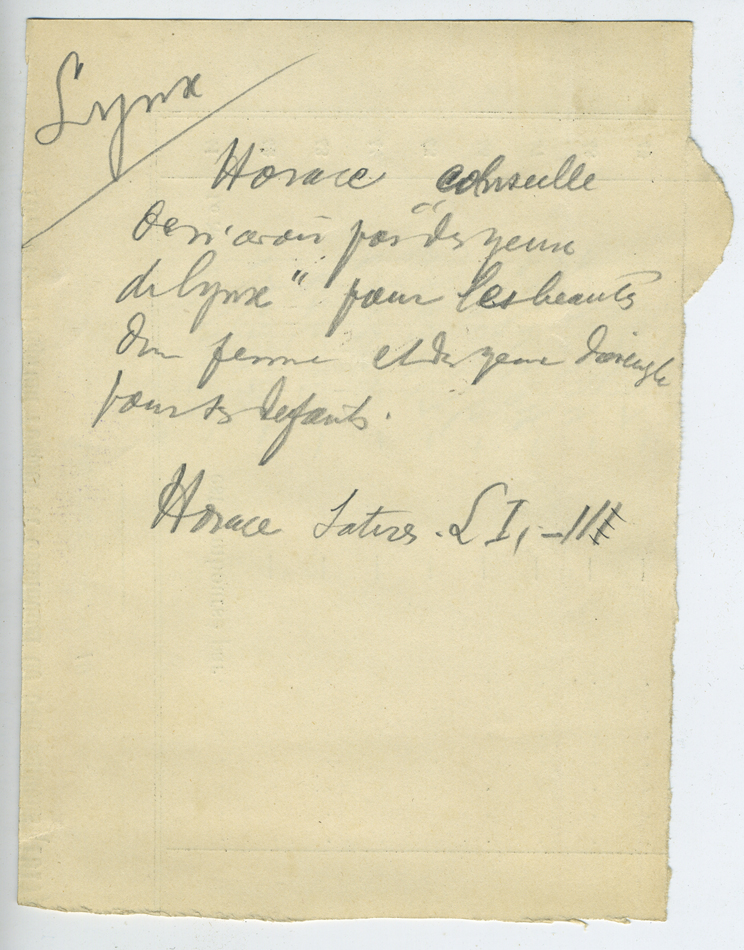 Lynx
Horace conseille
de n'avoir pas "des yeux
de lynx" pour les beautés
d'une femme et des yeux d'aveugle
pour ses defauts.
Horace Satires. L I, - II